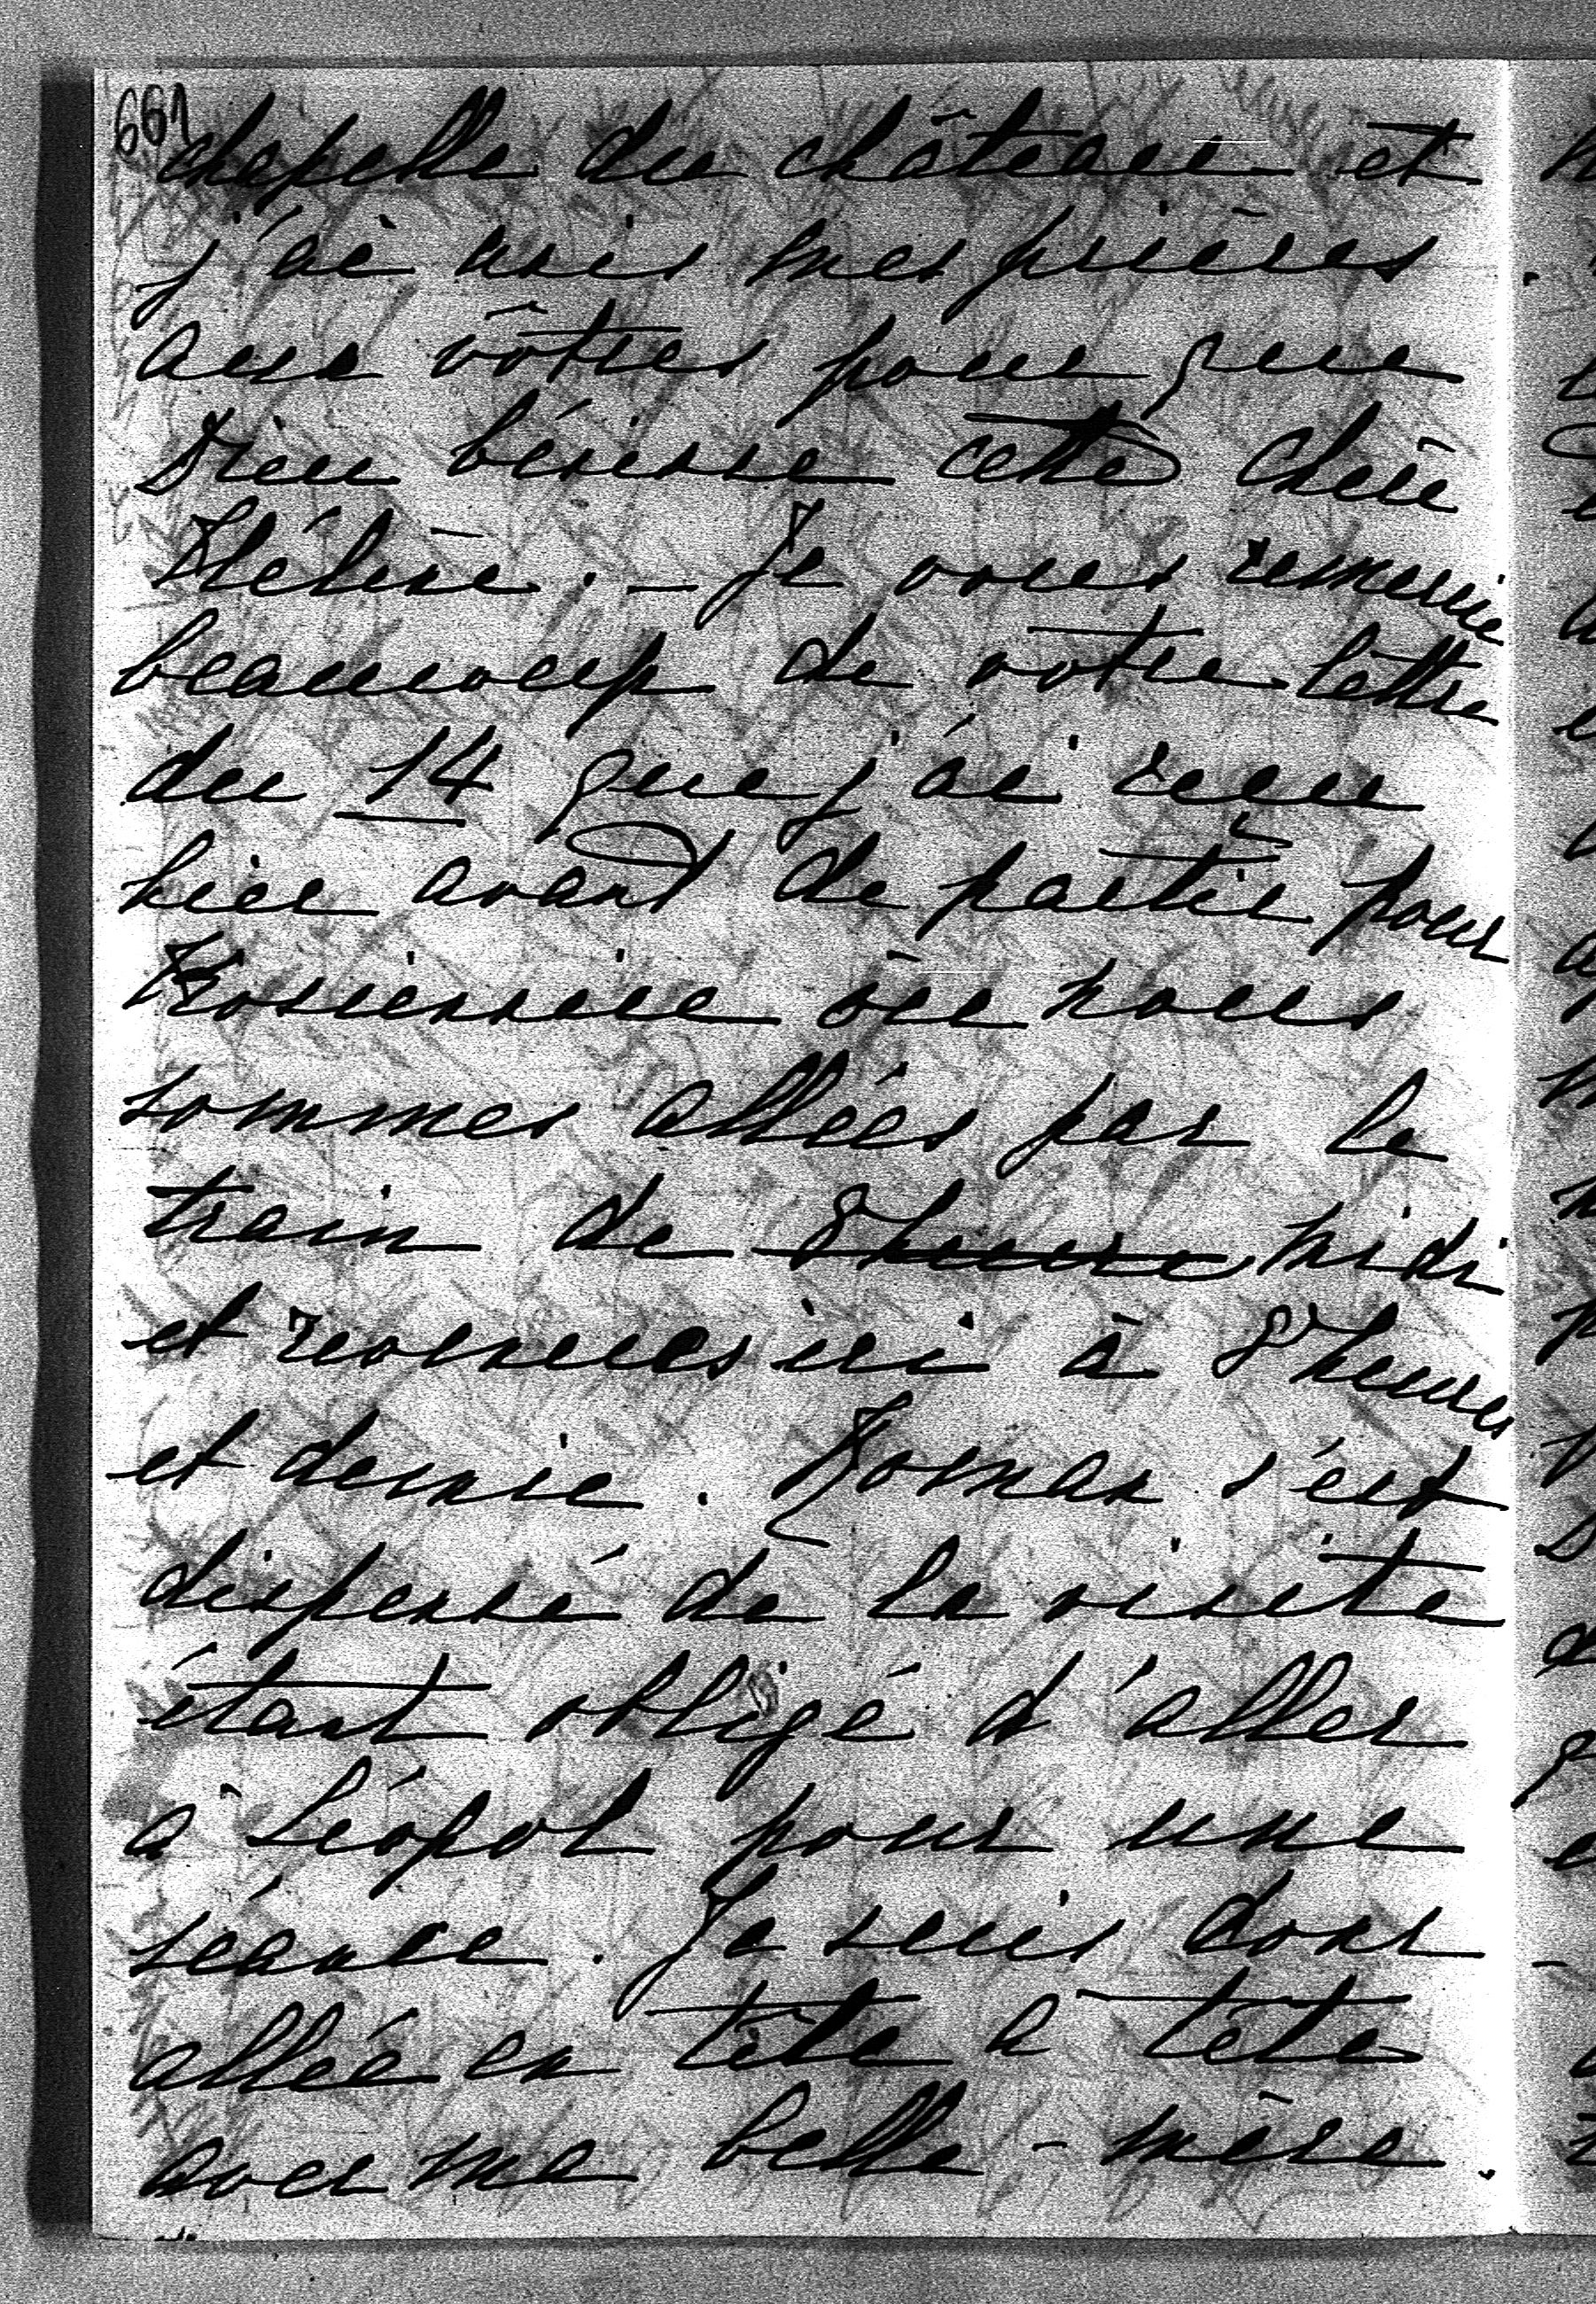 661
chapelle du château et
j'ai unis mes prières
aux vôtres pour que
Dieu bénisse cette chère
Hélène. – Je vous remercie
beaucoup de votre lettre
du 14 que j'ai reçue
hier avant de partir pour
où nous
sommes allées par le
train de 8 heures midi
et revenues ici à 8 heures
et demie. Roman s'est
dispensé de la visite
étant obligé d'aller
à Léopol pour une
séance. Je suis donc
allée en tête à tête
avec ma belle-mère.